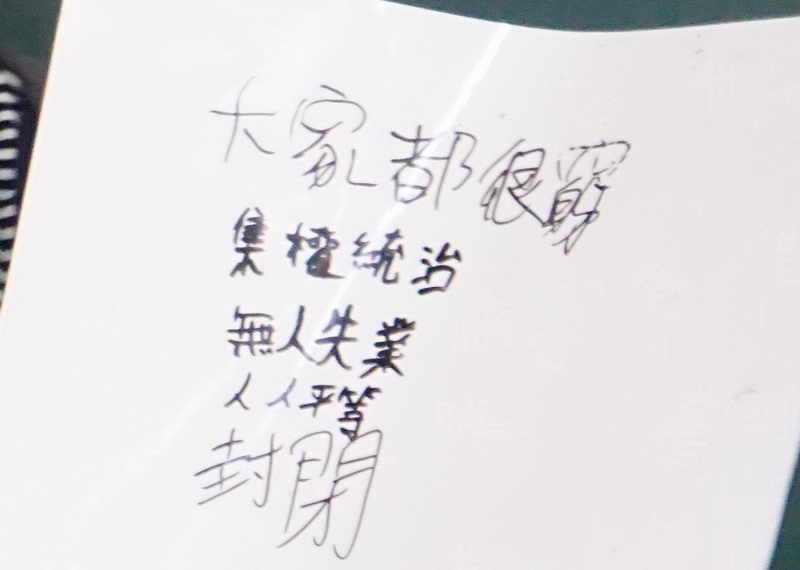 大家都很窮
集權統治
無人失業
人人平等
封閉